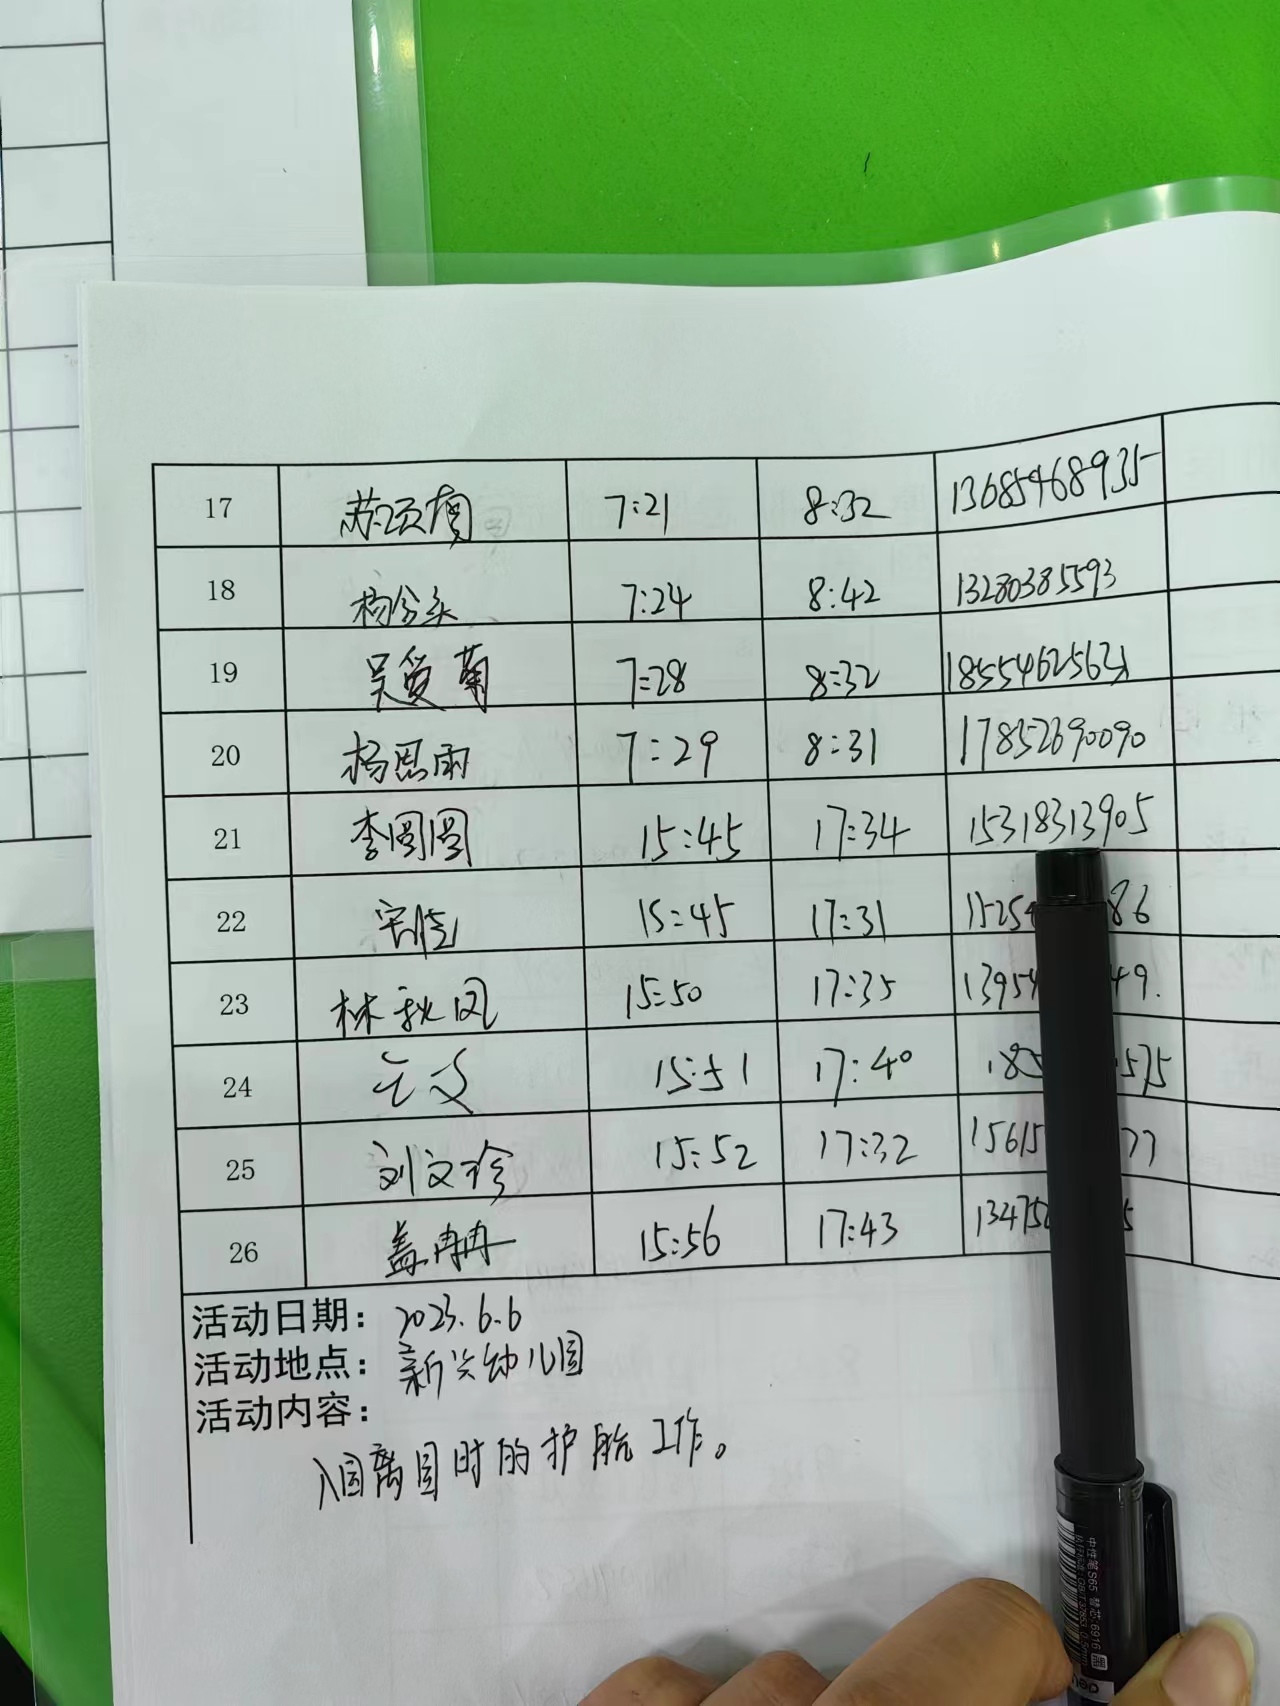 17 7:21 8:32 13685468935
18 7:24 8:42 13280385593
19 吴爱菊 7:28 8:32
20 杨思雨 7:29 8:31 17852690090
21 李圆圆 15:45 17:34 15318313905
22 15:45 17:31 15254 86
23 林秋凤 15:50 17:35 13954 49.
24 15:51 17:40 185 575
25 刘文珍 15:52 17:32 15615 77
26 盖冉冉 15:56 17:43 13475 5
活动日期: 2023.6.6
活动地点: 新兴幼儿园
活动内容:
入园离园时的护航工作。
中性笔S65 替芯:6916 黑